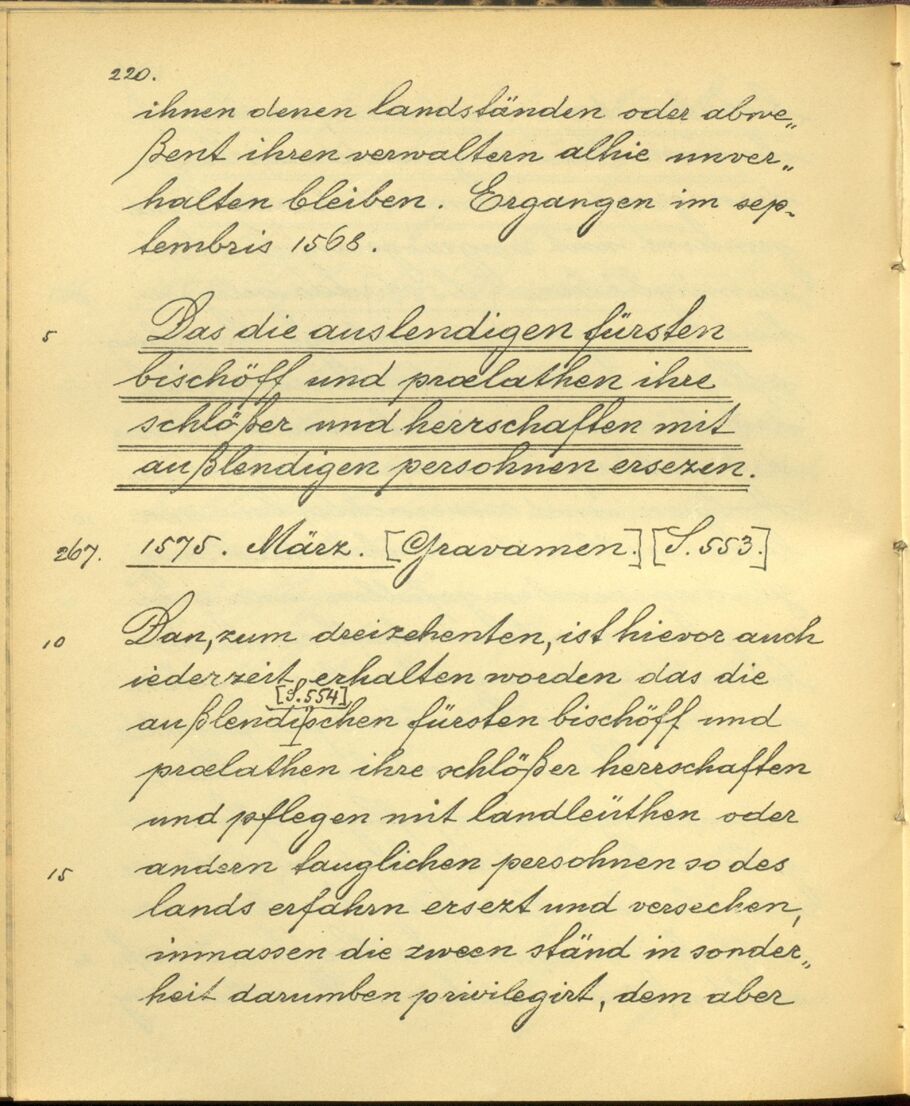 220.
ihnen denen landständen oder abwe„
ßent ihren verwaltern alhie unver„
halten bleiben. Ergangen im sep„
tembris 1568.
5
Das die auslendigen fürsten
bischöff und prælathen ihre
schlößer und herrschaften mit
außlendigen persohnen ersezen.
267. 1575. März. [Gravamen.] [S. 553.]
10 Dan, zum dreizehenten, ist hievor auch
iederzeit erhalten worden das die
[S. 554]
außlendischen fürsten bischöff und
prælathen ihre schlößer herrschaften
und pflegen mit landleüthen oder
15 andern tauglichen persohnen so des
lands erfahrn ersezt und versechen,
inmassen die zween ständ in sonder„
heit darumben privilegirt, dem aber